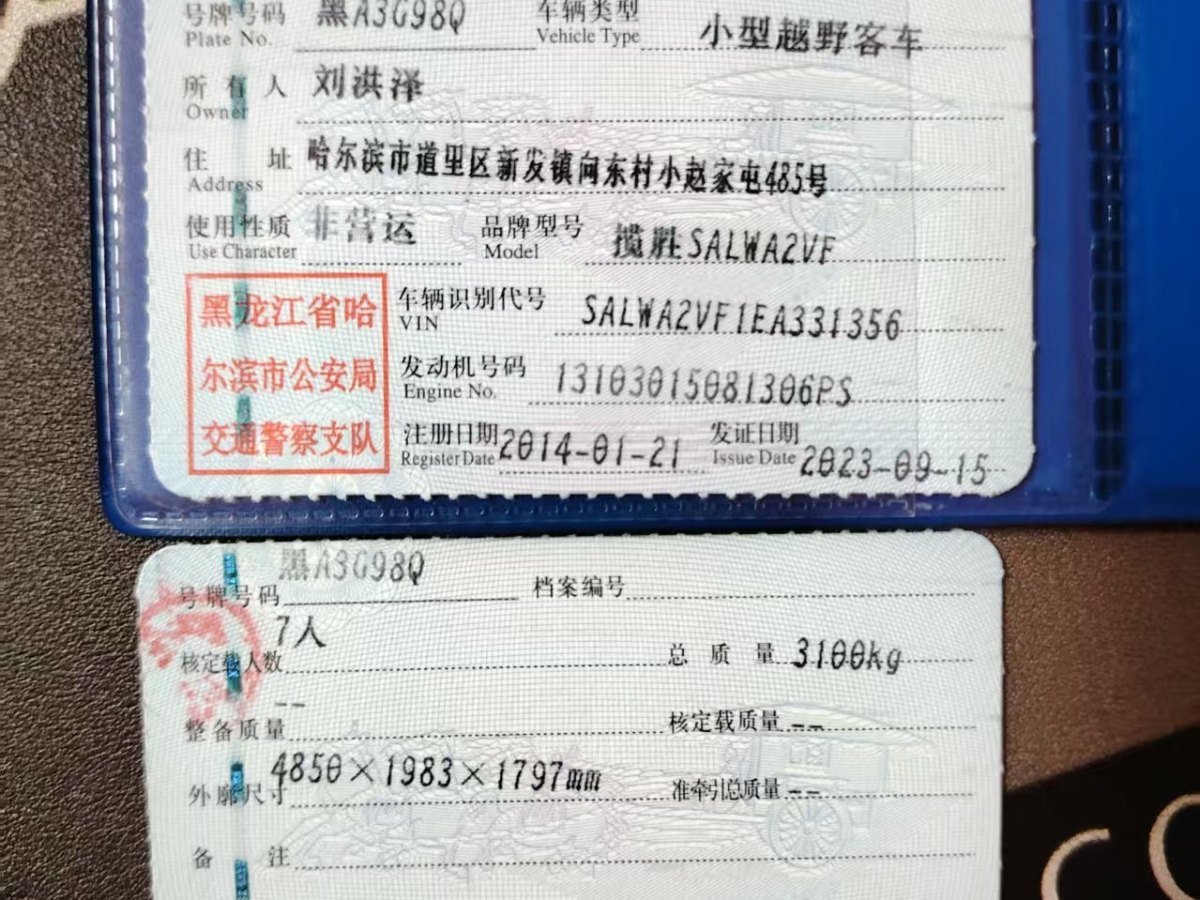 号牌号码 黑A3G98Q 车辆类型 小型越野客车
Plate No. Vehicle Type
所有人 刘洪泽
Owner
住址 哈尔滨市道里区新发镇向东村小赵家屯485号
Address
使用性质 非营运 品牌型号 揽胜SALWA2VF
Use Character Model
黑龙江省哈
尔滨市公安局
交通警察支队
车辆识别代号 SALWA2VF1EA331356
VIN
发动机号码 13103015081306PS
Engine No.
注册日期 2014-01-21 发证日期 2023-09-15
Register Date Issue Date
号牌号码 黑A3G98Q 档案编号
核定载人数 7人 总质量 3100kg
整备质量 -- 核定载质量 --
外廓尺寸 4850×1983×1797mm 准牵引总质量 --
备注